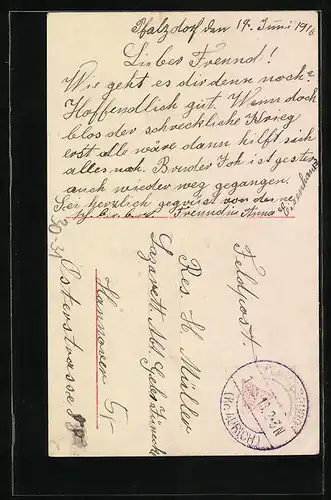 Pfalzdorf den 14. Juni 1916
Lieber Freund!
Wie geht es dir denn noch?
Hoffendlich gut. Wenn doch
blos der schreckliche Krieg
erst alle wäre dann hilft sich
alles nok. Bruder Joh ist gestern
auch wieder weg gegangen.
Sei herzlich gegrüsst von deine
Freundin Anna
Feldpost.
Res. H. Müller
Lazarett. Abt.
Hannover
Osterstrasse
30-31